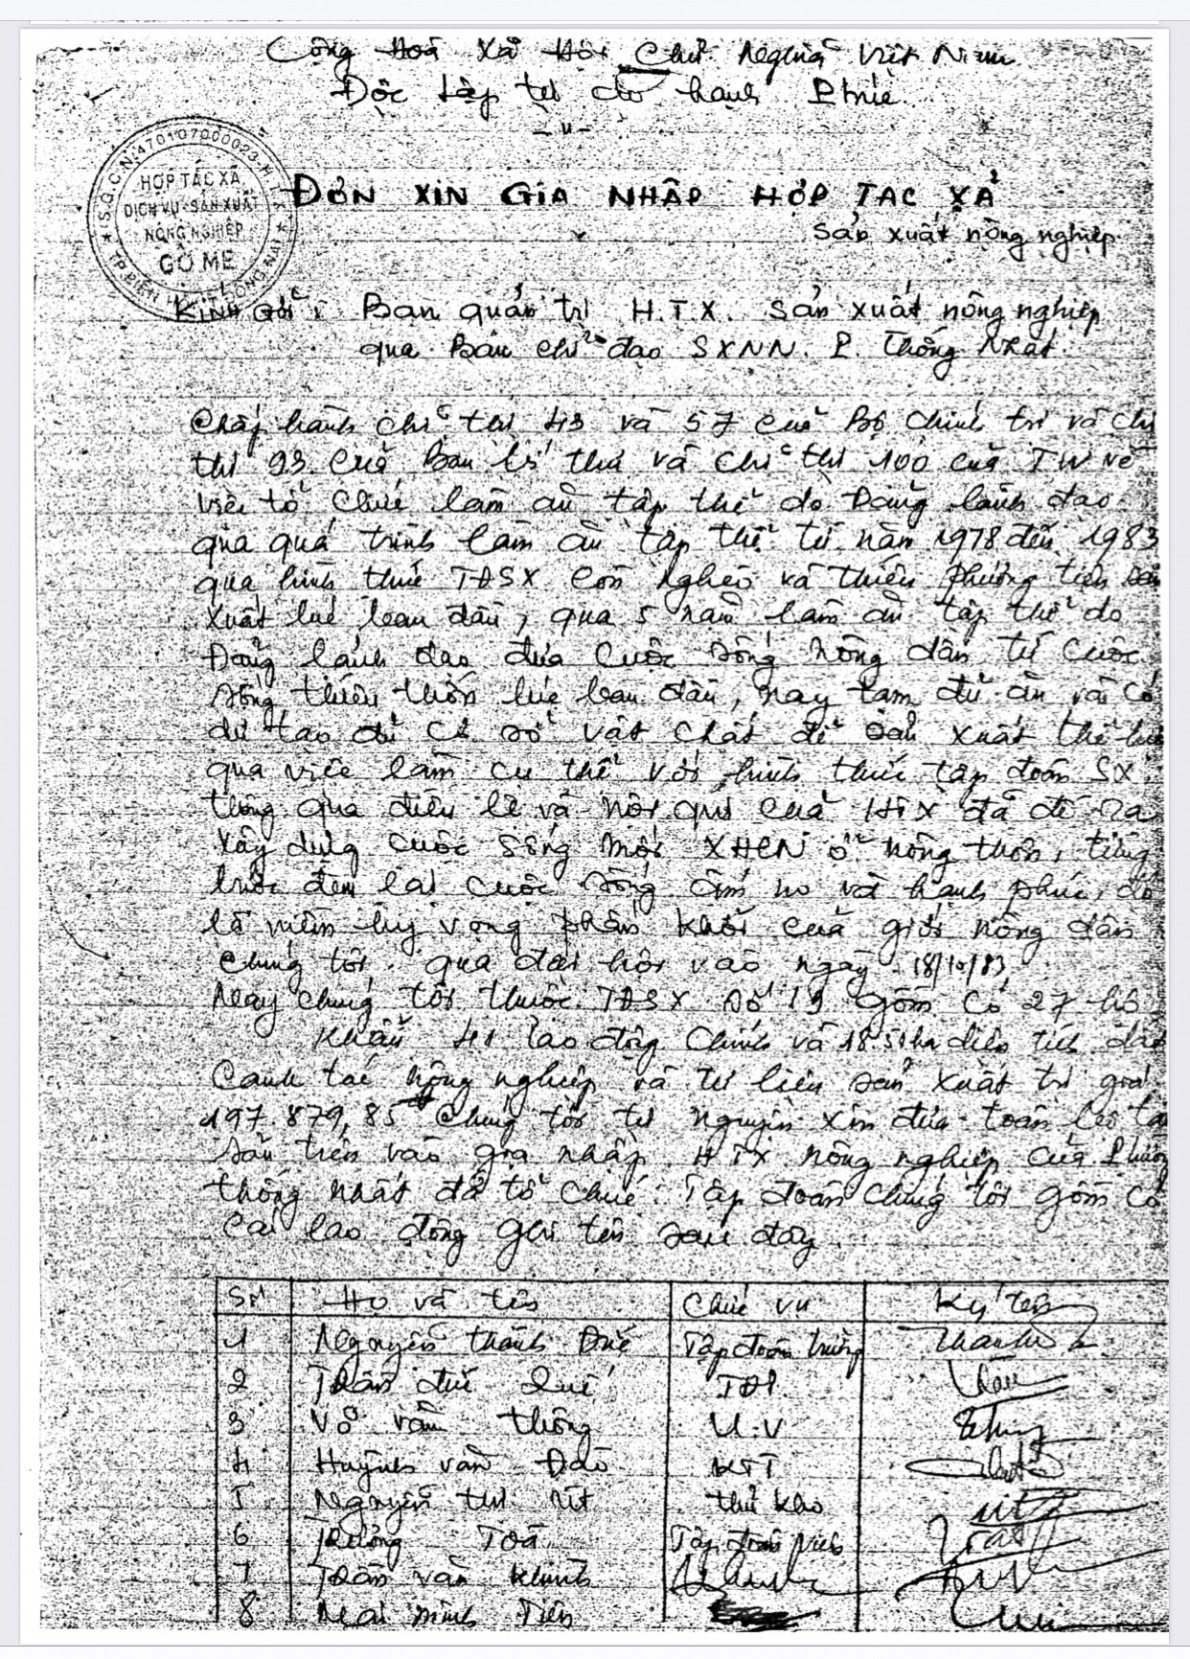 Cộng Hoà Xã Hội Chủ Nghĩa Việt Nam
Độc Lập tự do hạnh Phúc
-"-
S.Đ.C.N:470107000023-H.T.X
HỢP TÁC XÃ
DỊCH VỤ-SẢN XUẤT
NÔNG NGHIỆP
GÒ ME
TP.BIÊN HOÀ T.ĐỒNG NAI
ĐƠN XIN GIA NHẬP HỢP TÁC XÃ
Sản xuất nông nghiệp
Kính Gởi: Ban quản trị H.T.X. Sản xuất nông nghiệp
qua Ban chỉ đạo SXNN. P. Thống Nhất.
Chấp hành chỉ thị 43 và 57 của Bộ Chính trị và chỉ
thị 93 của Ban bí thư và chỉ thị 100 của TW về
việc tổ chức làm ăn tập thể do Đảng lãnh đạo
qua quá trình làm ăn tập thể từ năm 1978 đến 1983
qua hình thức TĐSX còn nghèo và thiếu phương tiện sản
xuất lúc ban đầu, qua 5 năm làm ăn tập thể do
Đảng lảnh đạo đưa cuộc sống nông dân từ cuộc
sống thiếu thốn lúc ban đầu, nay tạm đủ ăn và có
dư tạo đủ cơ sở vật chất để sản xuất
qua việc làm cụ thể với hình thức tập đoàn SX
thông qua điều lệ và nội qui của HTX đã đề ra
xây dựng cuộc sống mới XHCN ở nông thôn, từng
bước đem lại cuộc sống ấm no và hạnh phúc, đó
là niềm hy vọng phấn khởi của giới nông dân
chúng tôi. qua đại hội vào ngày 18/10/83
Nay chúng tôi thuộc TĐSX số 19 gồm có 27 hộ
khẩu 41 lao động chính và 18.51ha diện tích đất
canh tác nông nghiệp và tư liệu sản xuất trị giá
197.879,85đ chúng tôi tự nguyện xin đưa toàn bộ tài
sản trên vào gia nhập HTX nông nghiệp của Phường
thống nhất đã tổ chức. Tập đoàn chúng tôi gồm có
các lao động ghi tên sau đây
STT Họ và tên Chức vụ Ký tên
1 Nguyễn thành Đức Tập đoàn trưởng
2 Trần đức Quí TĐP.
3 Võ văn thông U.V
4 Huỳnh văn Đào KTT
5 Nguyễn thị Út thủ kho
6 Trương Toá Tập đoàn viên
7 Trần văn khinh
8 Mai minh Tiên